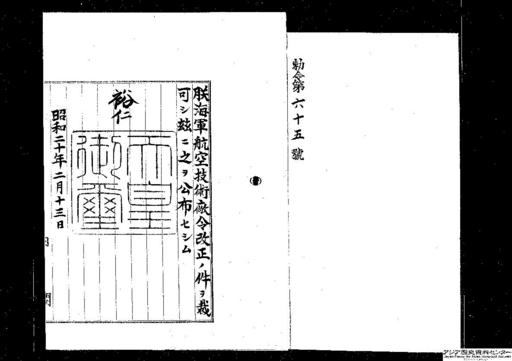 勅令第六十五號
朕海軍航空技術廠令改正ノ件ヲ裁
可シ玆ニ之ヲ公布セシム
裕仁
天皇
御璽
昭和二十年二月十三日
アジア歴史資料センター